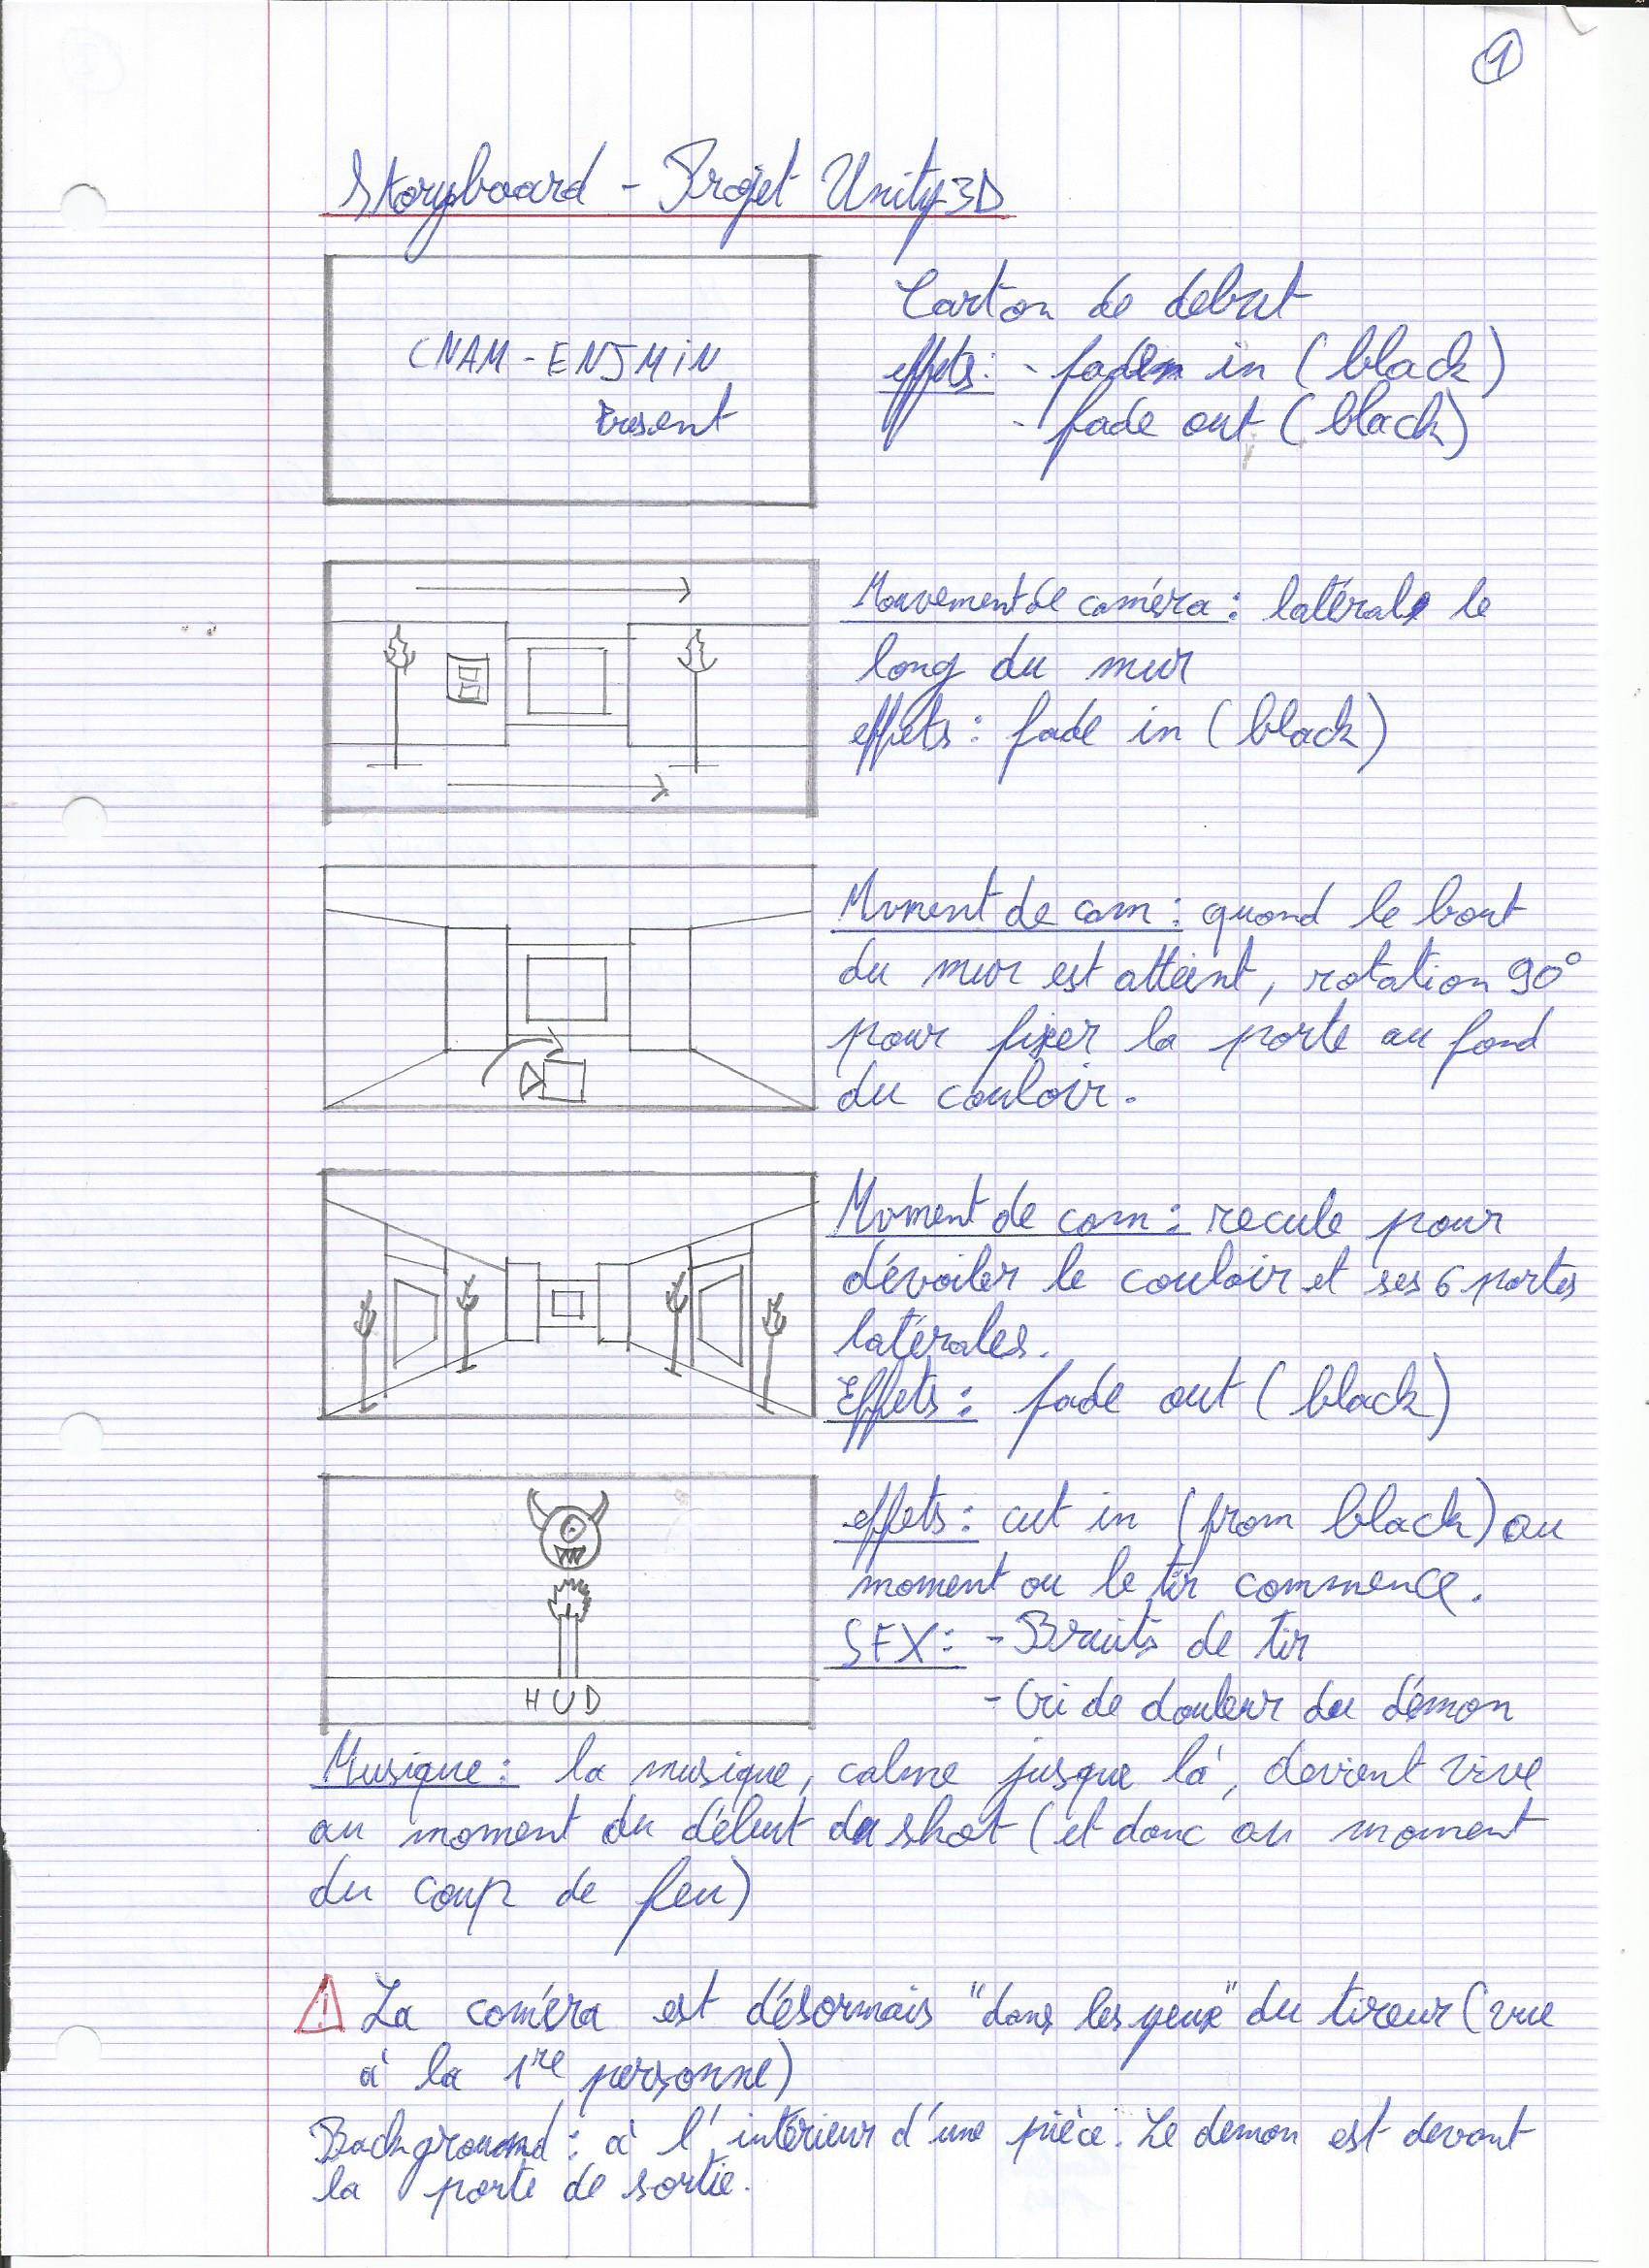 1
Storyboard - Projet Unity3D
CNAM - ENJMIN
Present
Carton de debut
effets: - fade in (black)
- fade out (black)
Mouvement de caméra : latéral le
long du mur
effets : fade in (black)
Mvment de cam : quand le bout
du mur est atteint, rotation 90°
pour fixer la porte au fond
du couloir.
Mvment de cam : recule pour
dévoiler le couloir et ses 6 portes
latérales.
Effets : fade out (black)
effets : cut in (from black) au
moment ou le tir commence.
SFX : - Bruits de tir
- Cri de douleur du démon
HUD
Musique : la musique, calme jusque là, devient vive
au moment du début du shot (et donc au moment
du coup de feu)
! La caméra est désormais "dans les yeux" du tireur (vue
à la 1re personne)
Background : à l'intérieur d'une pièce. Le demon est devant
la porte de sortie.